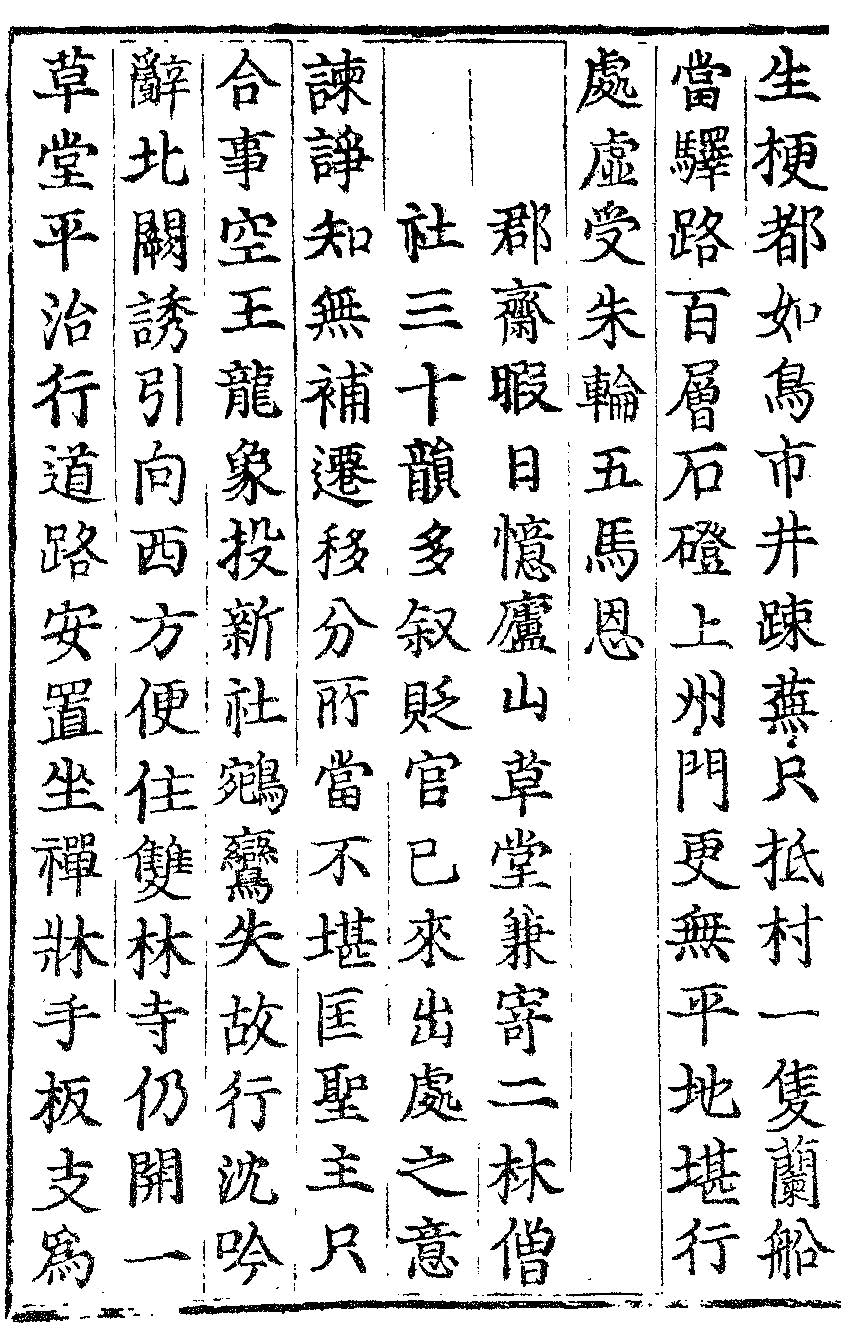 生梗都如鳥市井踈蕪只抵村一隻蘭船
當驛路百層石磴上州門更無平地堪行
處虛受朱輪五馬恩
郡齋暇日憶廬山草堂兼寄二林僧
社三十韻多叙貶官已來出處之意
諫諍知無補遷移分所當不堪匡聖主只
合事空王龍象投新社鵷鸞失故行沈吟
辭北闕誘引向西方便住雙林寺仍開一
草堂平治行道路安置坐禪牀手板支爲